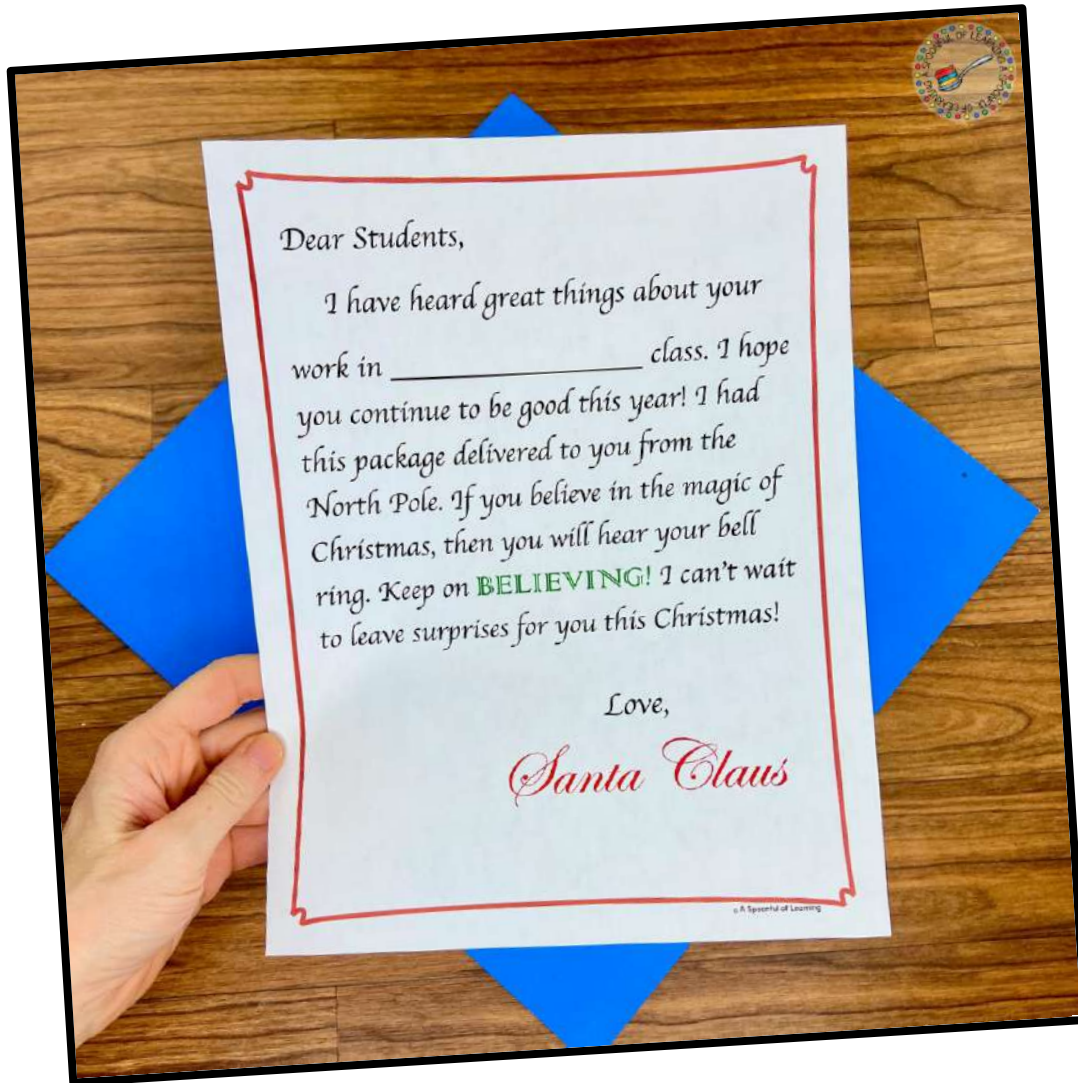 A SPOONFUL OF LEARNING A SPOONFUL OF LEARNING
Dear Students,
I have heard great things about your
work in ____________________ class. I hope
you continue to be good this year! I had
this package delivered to you from the
North Pole. If you believe in the magic of
Christmas, then you will hear your bell
ring. Keep on BELIEVING! I can't wait
to leave surprises for you this Christmas!
Love,
Santa Claus
© A Spoonful of Learning